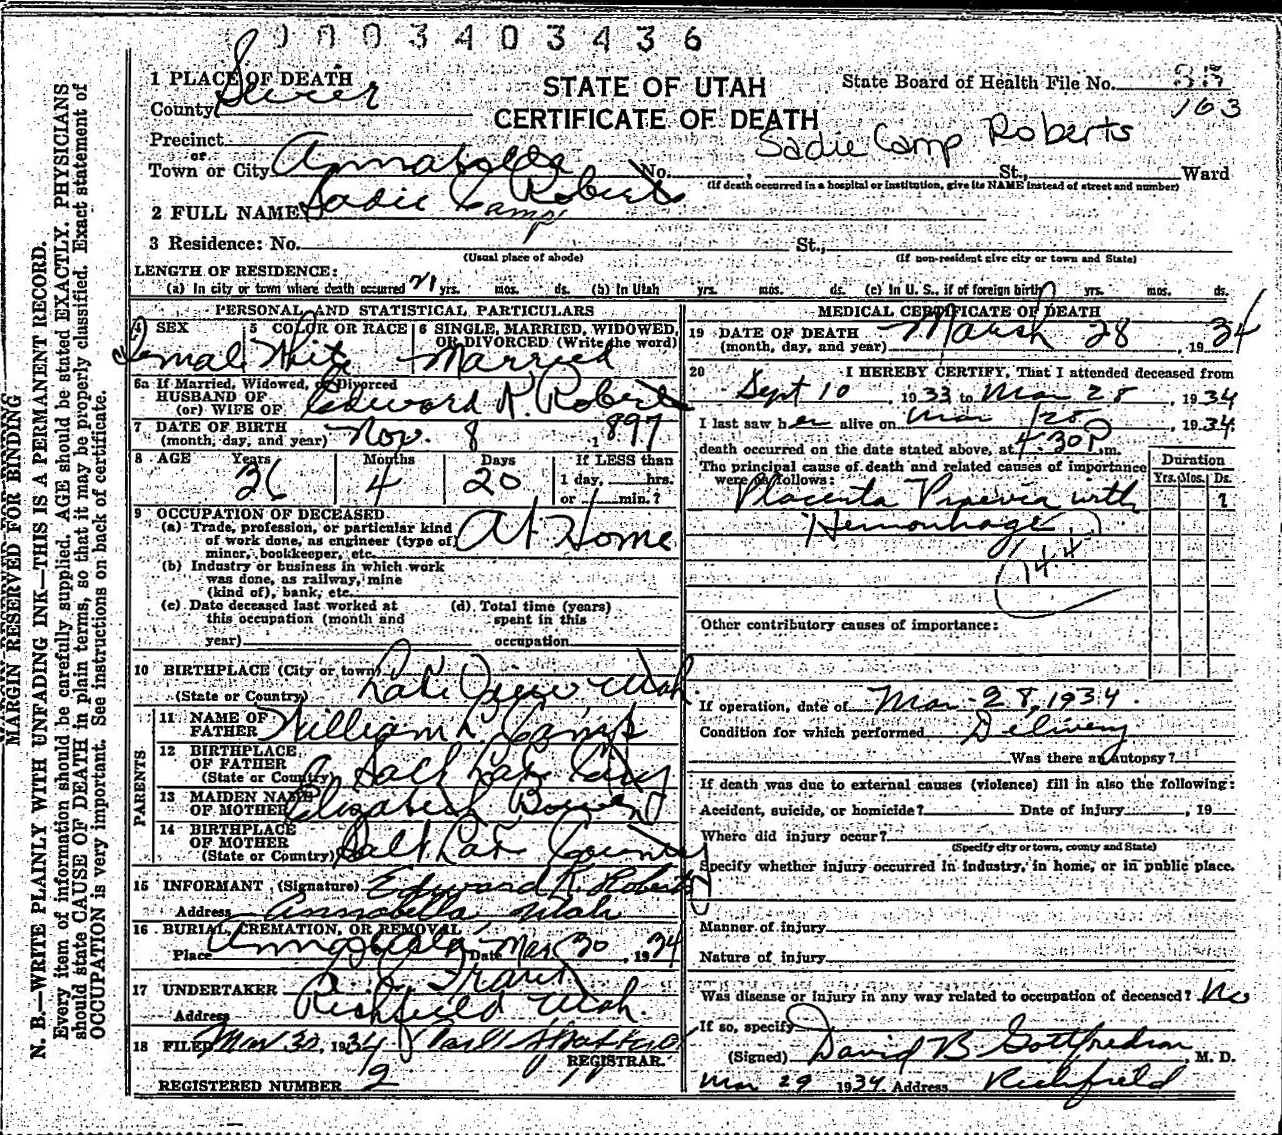 0 0 0 3 4 0 3 4 3 6
STATE OF UTAH
CERTIFICATE OF DEATH
State Board of Health File No. 35
163
Sadie Camp Roberts
1 PLACE OF DEATH
County Sevier
Precinct
or
Town or City Annabella No. , St., Ward
(If death occurred in a hospital or institution, give its NAME instead of street and number)
2 FULL NAME Sadie Camp Roberts
3 Residence: No. St.,
(Usual place of abode) (If non-resident give city or town and State)
LENGTH OF RESIDENCE:
(a) In city or town where death occurred yrs. mos. ds. (b) In Utah yrs. mos. ds. (c) In U. S., if of foreign birth yrs. mos. ds.
PERSONAL AND STATISTICAL PARTICULARS
4 SEX 5 COLOR OR RACE 6 SINGLE, MARRIED, WIDOWED, OR DIVORCED (Write the word)
Femal White Married
6a If Married, Widowed, or Divorced
HUSBAND OF
(or) WIFE OF Edward R. Roberts
7 DATE OF BIRTH
(month, day, and year) Nov. 8 1897
8 AGE Years Months Days If LESS than
36 4 20 1 day, hrs.
or min.?
9 OCCUPATION OF DECEASED
(a) Trade, profession, or particular kind
of work done, as engineer (type of
miner, bookkeeper, etc. At Home
(b) Industry or business in which work
was done, as railway, mine
(kind of), bank, etc.
(c) Date deceased last worked at
this occupation (month and
year)
(d) Total time (years)
spent in this
occupation
10 BIRTHPLACE (City or town)
(State or Country) Lake View Utah
PARENTS
11 NAME OF
FATHER William L. Camp
12 BIRTHPLACE
OF FATHER
(State or Country) Salt Lake City
13 MAIDEN NAME
OF MOTHER Elizabeth Bowen
14 BIRTHPLACE
OF MOTHER
(State or Country) Salt Lake County
15 INFORMANT (Signature) Edward R. Roberts
Address Annabella Utah
16 BURIAL, CREMATION, OR REMOVAL
Place Annabella Date Mar 30, 1934
17 UNDERTAKER
Address Richfield Utah.
18 FILED Mar 30, 1934
REGISTRAR.
REGISTERED NUMBER 2
MEDICAL CERTIFICATE OF DEATH
19 DATE OF DEATH
(month, day, and year) Marsh 28, 1934
20 I HEREBY CERTIFY, That I attended deceased from
Sept 10, 1933 to Mar 28, 1934
I last saw her alive on Mar 28, 1934
death occurred on the date stated above, at 4:30 P m.
The principal cause of death and related causes of importance
were as follows:
Duration
Yrs. Mos. Ds.
Placenta Praevia with 1
Hemorrhage
144
Other contributory causes of importance:
If operation, date of Mar-28, 1934.
Condition for which performed Delivery
Was there an autopsy?
If death was due to external causes (violence) fill in also the following:
Accident, suicide, or homicide? Date of injury , 19
Where did injury occur?
(Specify city or town, county and State)
Specify whether injury occurred in industry, in home, or in public place.
Manner of injury
Nature of injury
Was disease or injury in any way related to occupation of deceased? No
If so, specify
(Signed) David B Gottfredson, M. D.
Mar 29 1934 Address Richfield
MARGIN RESERVED FOR BINDING
N. B.—WRITE PLAINLY WITH UNFADING INK—THIS IS A PERMANENT RECORD.
Every item of information should be carefully supplied. AGE should be stated EXACTLY. PHYSICIANS
should state CAUSE OF DEATH in plain terms, so that it may be properly classified. Exact statement of
OCCUPATION is very important. See instructions on back of certificate.